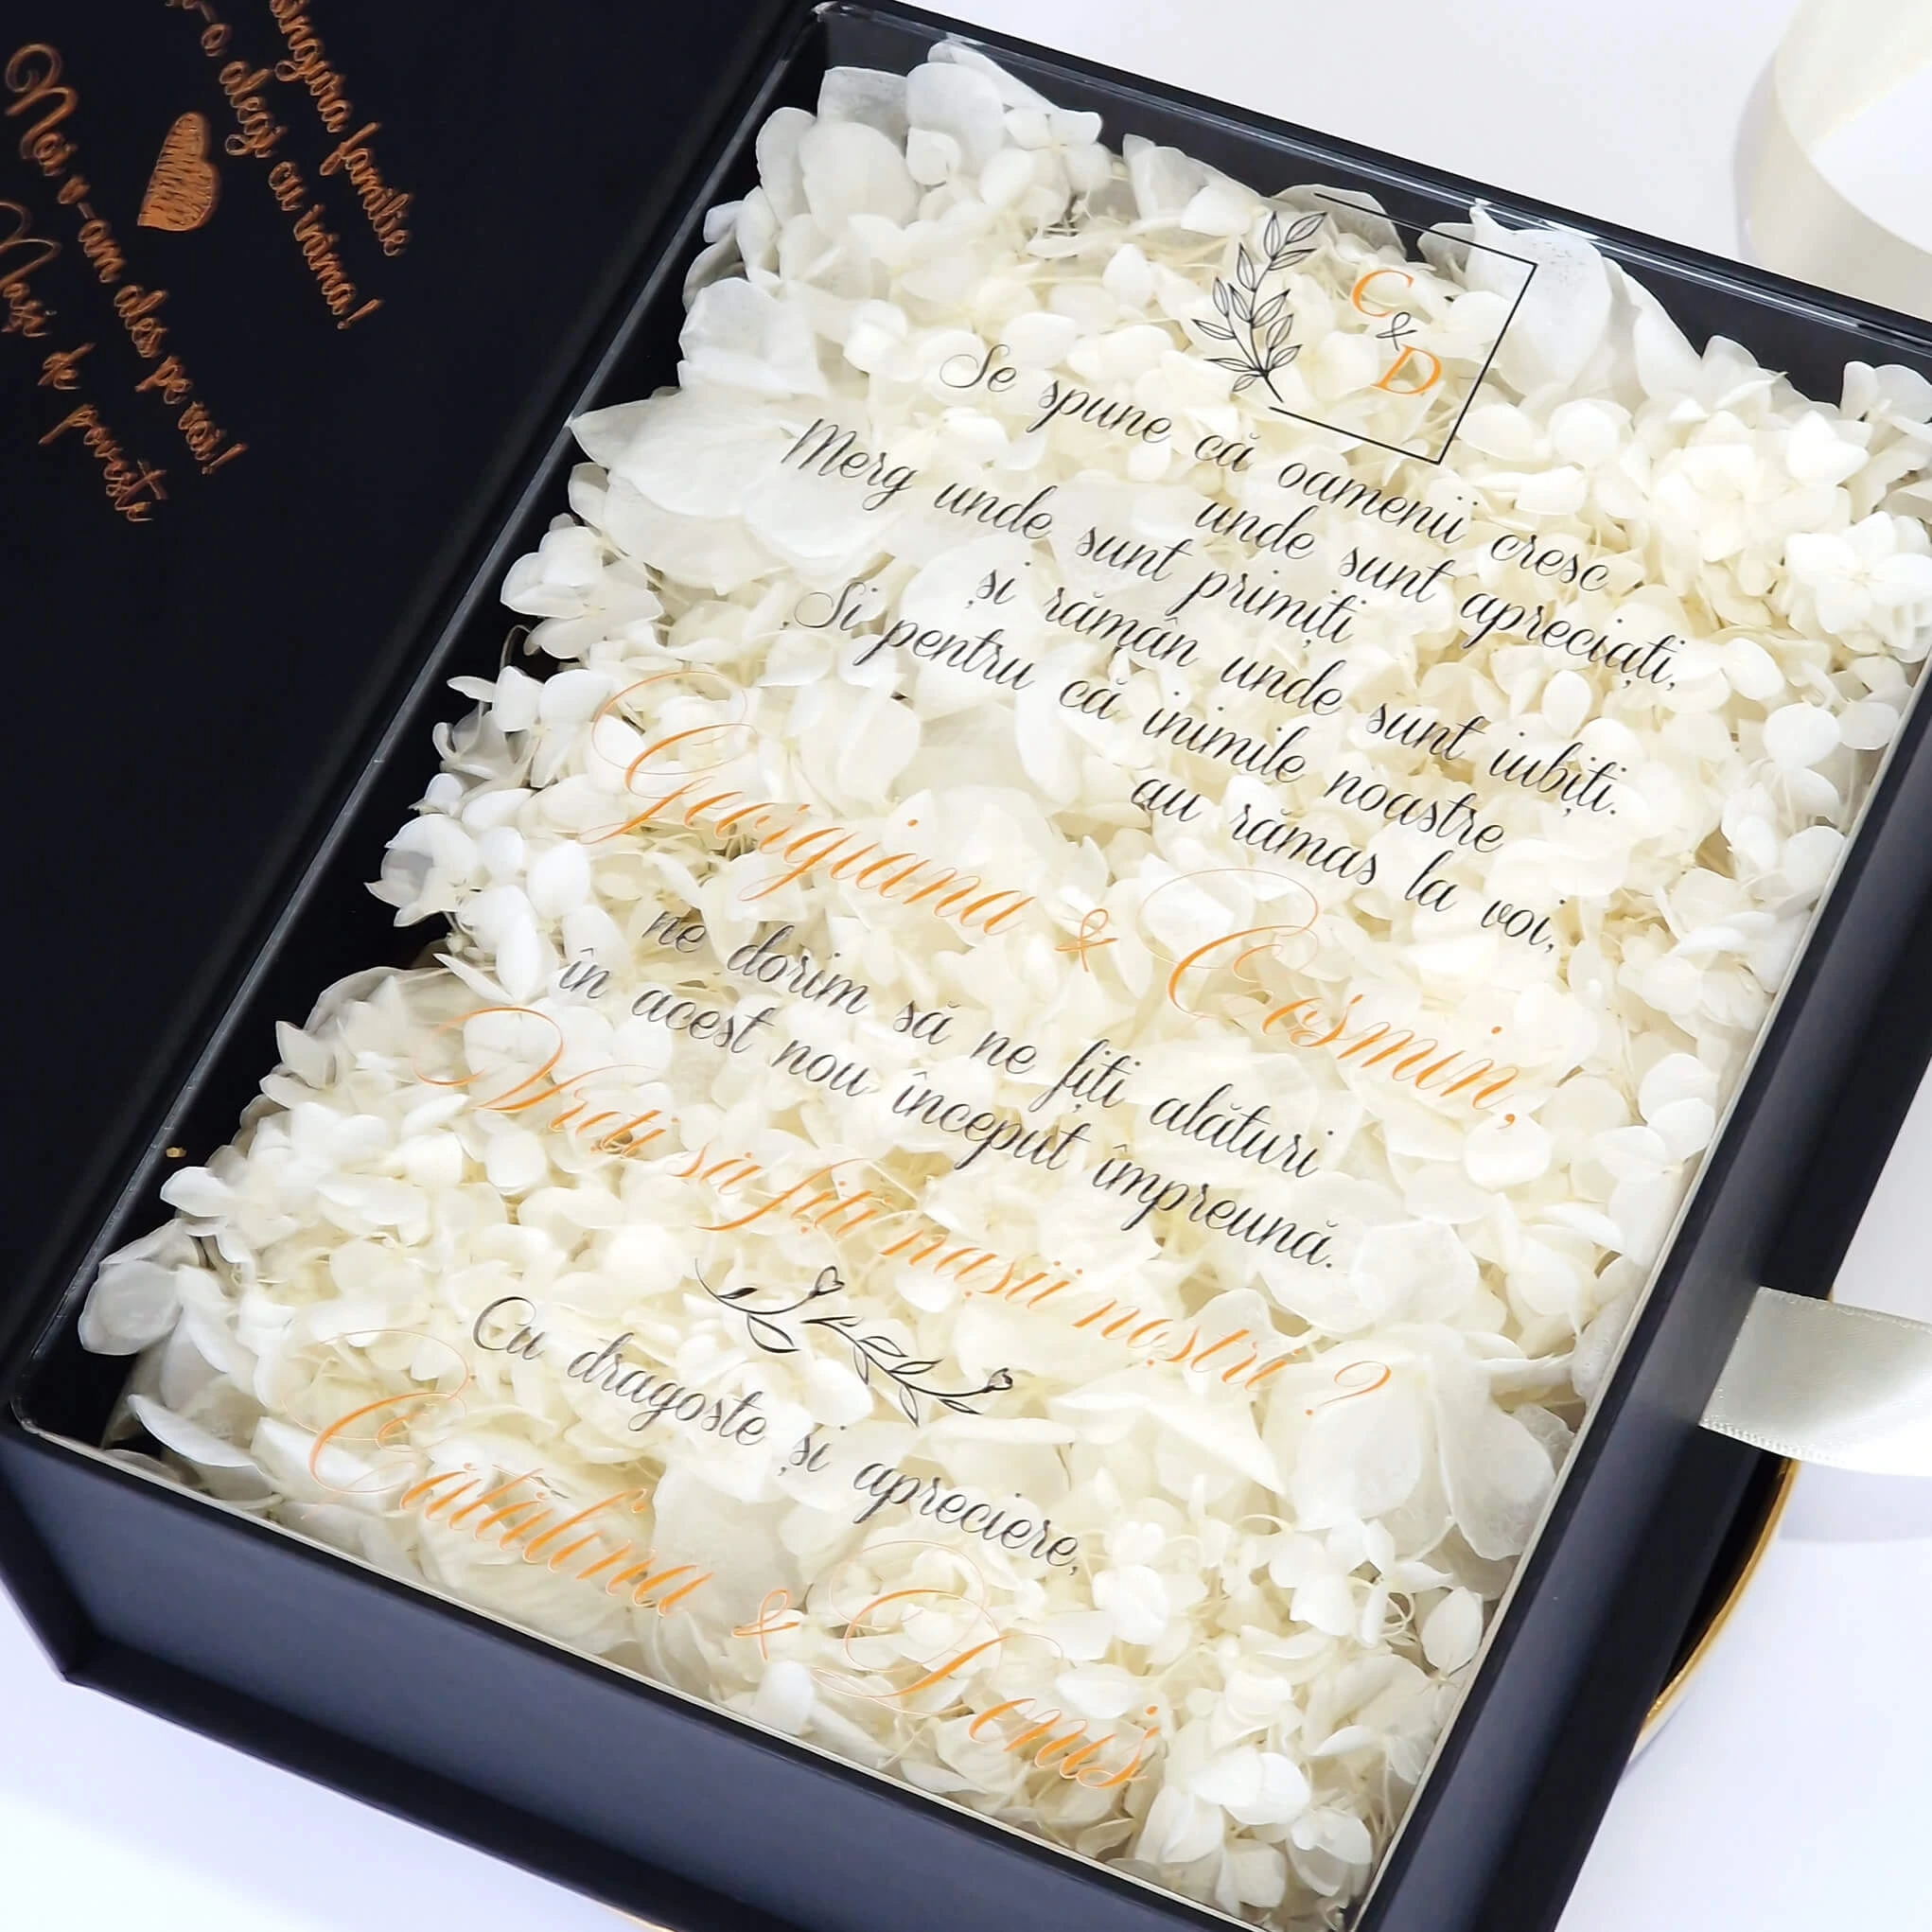 singura familie
o alegi cu inima!
Noi v-am ales pe voi!
Nași de poveste
C
&
D
Se spune că oamenii cresc
unde sunt apreciați,
Merg unde sunt primiți
și rămân unde sunt iubiți.
Și pentru că inimile noastre
au rămas la voi,
Georgiana & Cosmin,
ne dorim să ne fiți alături
în acest nou început împreună.
Vreți să fiți nașii noștri ?
Cu dragoste și apreciere,
Cătălina & Denis